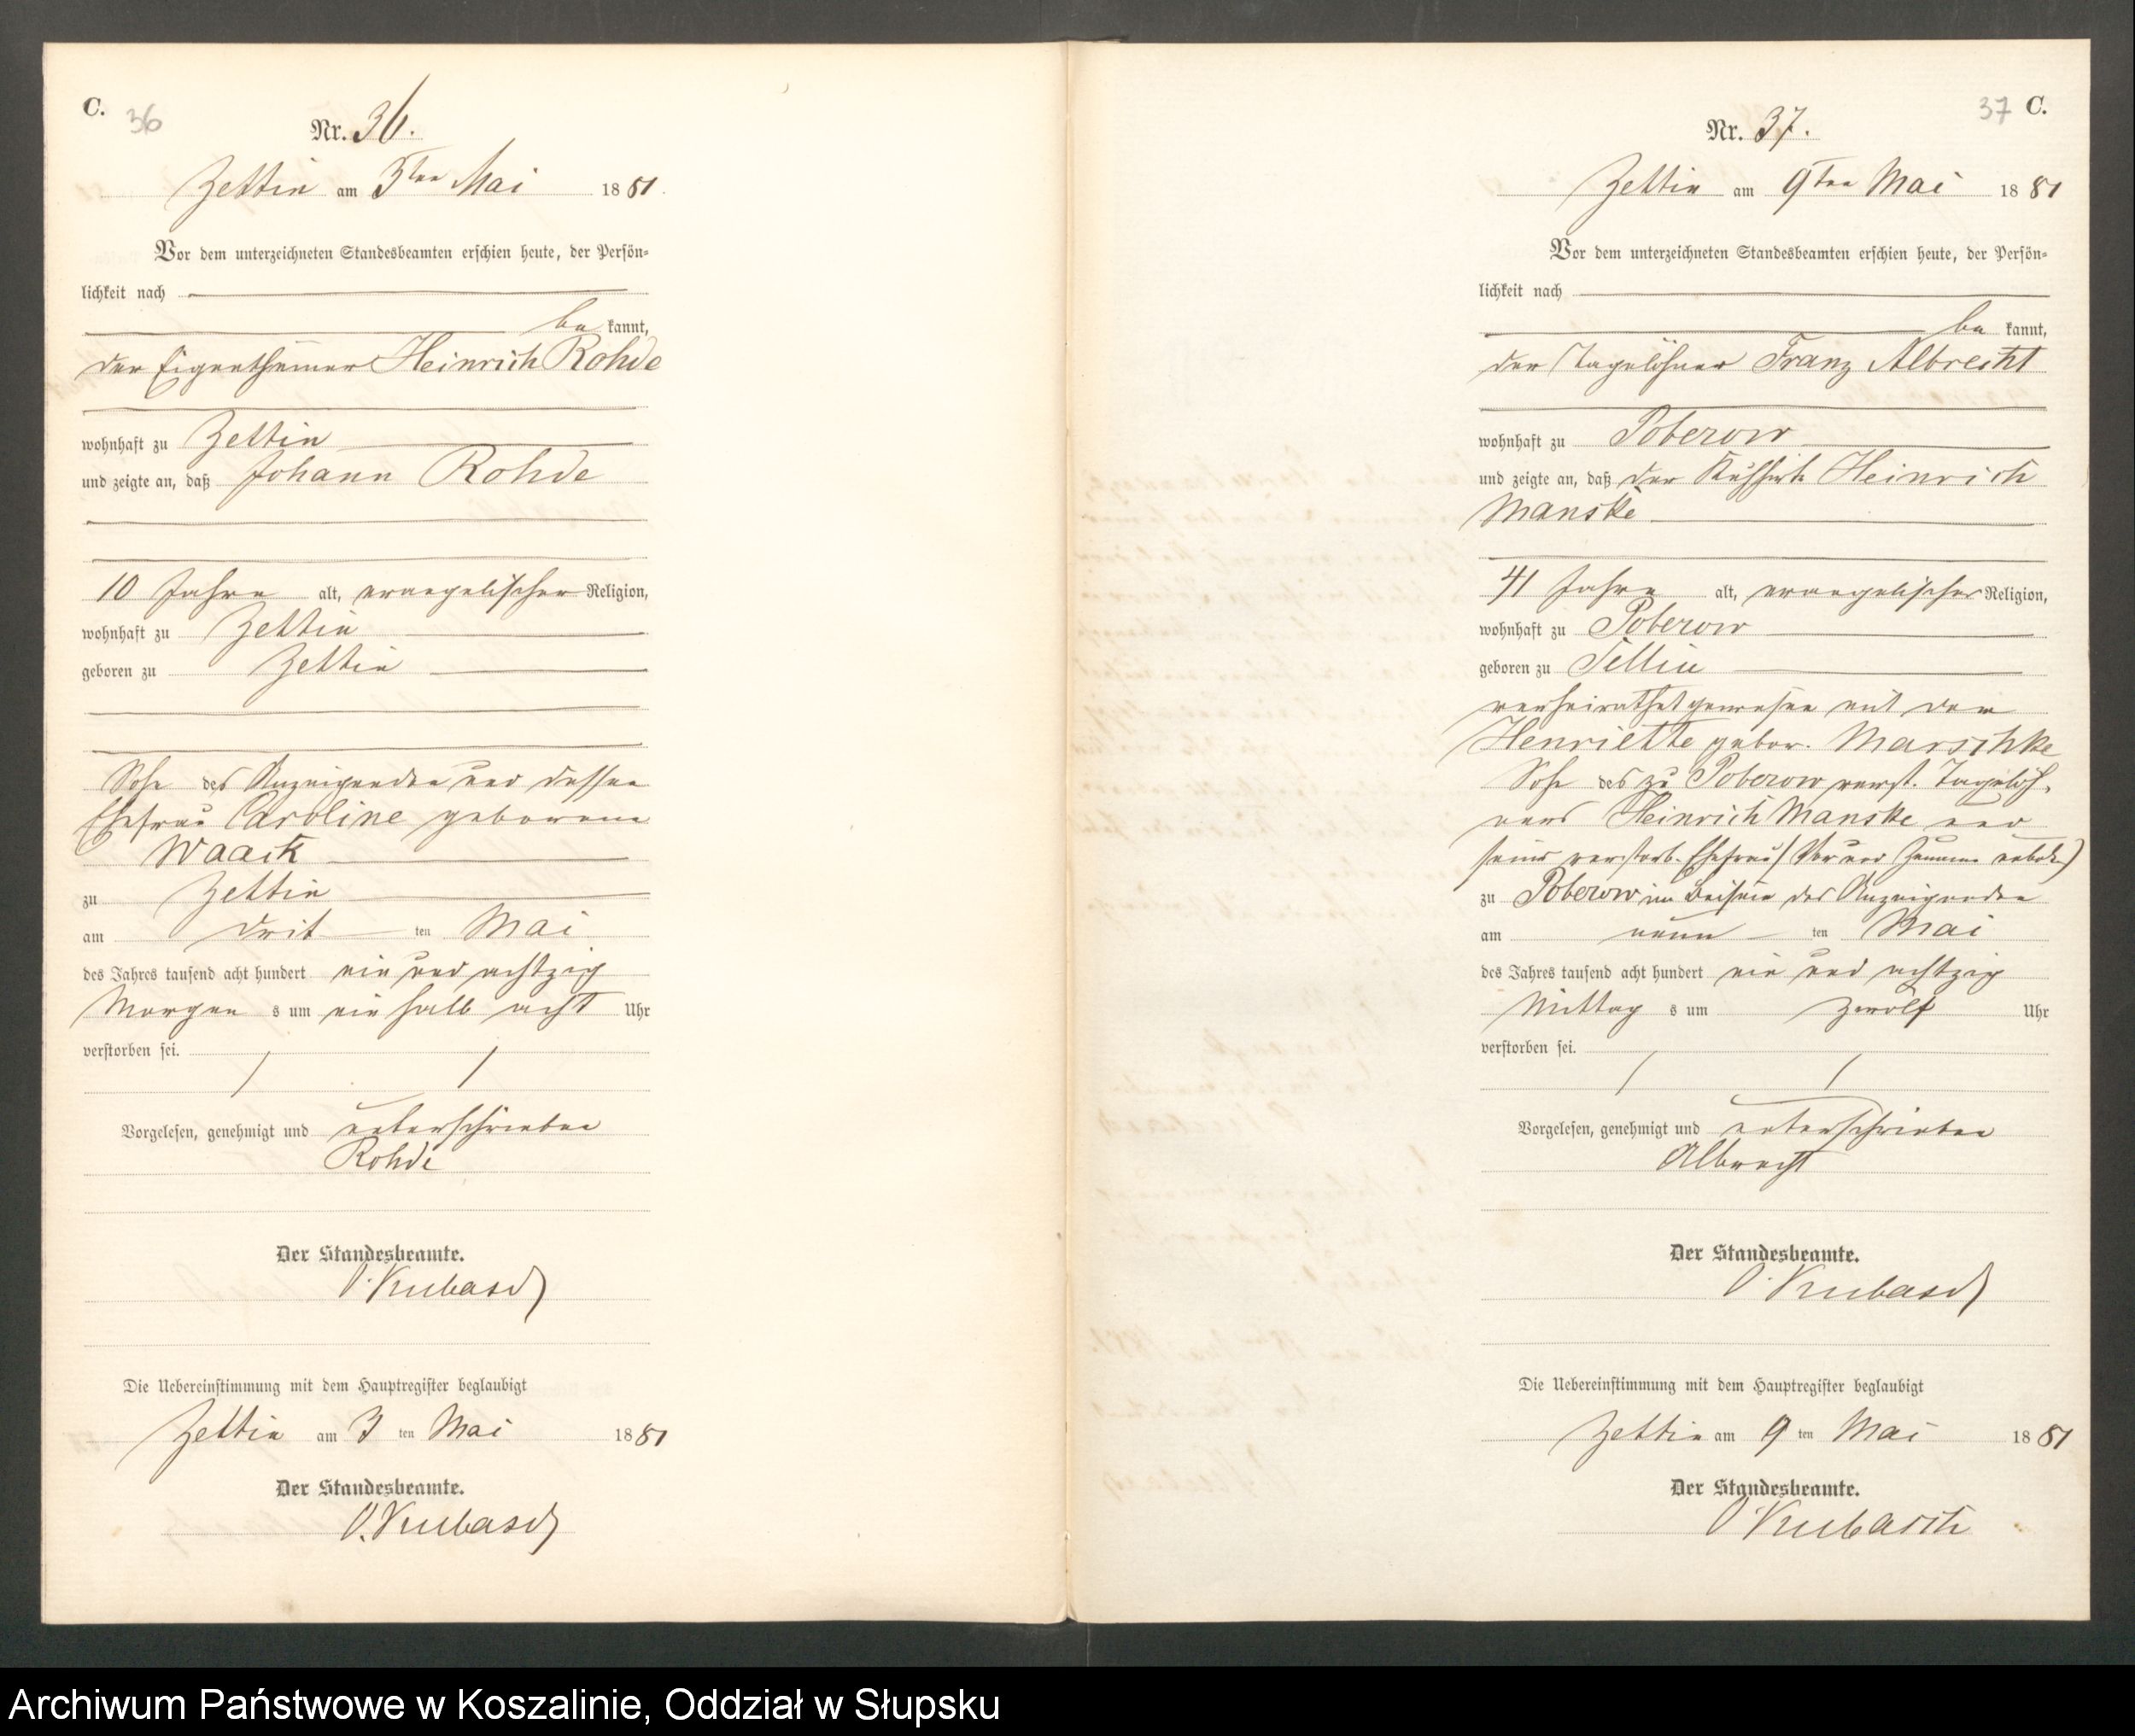 C. 36
Nr. 36.
Zettin am 3ten Mai 1881
Vor dem unterzeichneten Standesbeamten erschien heute, der Persön-
lichkeit nach
be kannt,
der Eigenthümer Heinrich Rohde
wohnhaft zu Zettin
und zeigte an, daß Johann Rohde
10 Jahre alt, evangelischer Religion,
wohnhaft zu Zettin
geboren zu Zettin
Sohn des Anzeigenden und dessen
Ehefrau Caroline geborene
Waack
zu Zettin
am drit ten Mai
des Jahres tausend acht hundert ein und achtzig
Morgen s um ein halb acht Uhr
verstorben sei.
Vorgelesen, genehmigt und unterschrieben
Rohde
Der Standesbeamte.
O. Kubasch
Die Uebereinstimmung mit dem Hauptregister beglaubigt
Zettin am 3 ten Mai 1881
Der Standesbeamte.
O. Kubasch
37 C.
Nr. 37.
Zettin am 9ten Mai 1881
Vor dem unterzeichneten Standesbeamten erschien heute, der Persön-
lichkeit nach
be kannt,
der Tagelöhner Franz Albrecht
wohnhaft zu Poberow
und zeigte an, daß der Kuhhirt Heinrich
Manske
41 Jahre alt, evangelischer Religion,
wohnhaft zu Poberow
geboren zu Tellin
verheirathet gewesen mit der
Henriette gebor. Marschke
Sohn des zu Poberow verst. Tagelöh-
ners Heinrich Manske und
seiner verstorb. Ehefrau (Vor und Zuname unbek.)
zu Poberow im Beisein des Anzeigenden
am neun ten Mai
des Jahres tausend acht hundert ein und achtzig
Mittag s um zwölf Uhr
verstorben sei.
Vorgelesen, genehmigt und unterschrieben
Albrecht
Der Standesbeamte.
O. Kubasch
Die Uebereinstimmung mit dem Hauptregister beglaubigt
Zettin am 9 ten Mai 1881
Der Standesbeamte.
O. Kubasch
Archiwum Państwowe w Koszalinie, Oddział w Słupsku